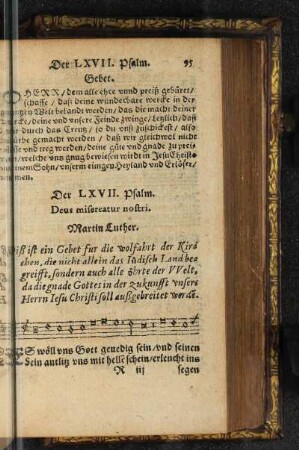 Der LXVII. Psalm. 95
Gebet.
HERR / dem alle ehre vnnd preiß gebüret /
schaffe / daß deine wunderbare wercke in der
gantzen Welt bekandt werden / das die macht deiner
deine vnd vnsere Feinde zwinge / letzlich / daß
wir durch das Creutz / so du vns zuschickest / also
gemacht werden / daß wir gleichwol nicht
vnd treg werden / deine güte vnd gnade zu preis
welche vns gnug bewiesen wirdt in Jesu Christo
deinem Sohn / vnserm einigen Heyland vnd Erlöser /
Amen.
Der LXVII. Psalm.
Deus misereatur nostri.
Martin Luther.
Diß ist ein Gebet fur die wolfahrt der Kirchen
chen, die nicht allein das Jüdisch Land begreifft
greifft, sondern auch alle öhrte der VVelt,
da die gnade Gottes in der Zukunfft vnsers
Herrn Iesu Christi soll außgebreitet werdē.
ES wöll vns Gott genedig sein / vnd seinen
Sein antlitz vns mit helle schein / erleucht ins
R iij segen